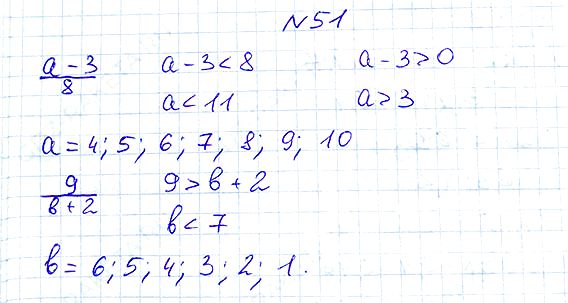 N51
a - 3 / 8   a - 3 < 8   a - 3 > 0
a < 11   a > 3
a = 4; 5; 6; 7; 8; 9; 10
9 / в + 2   9 > в + 2
в < 7
в = 6; 5; 4; 3; 2; 1.